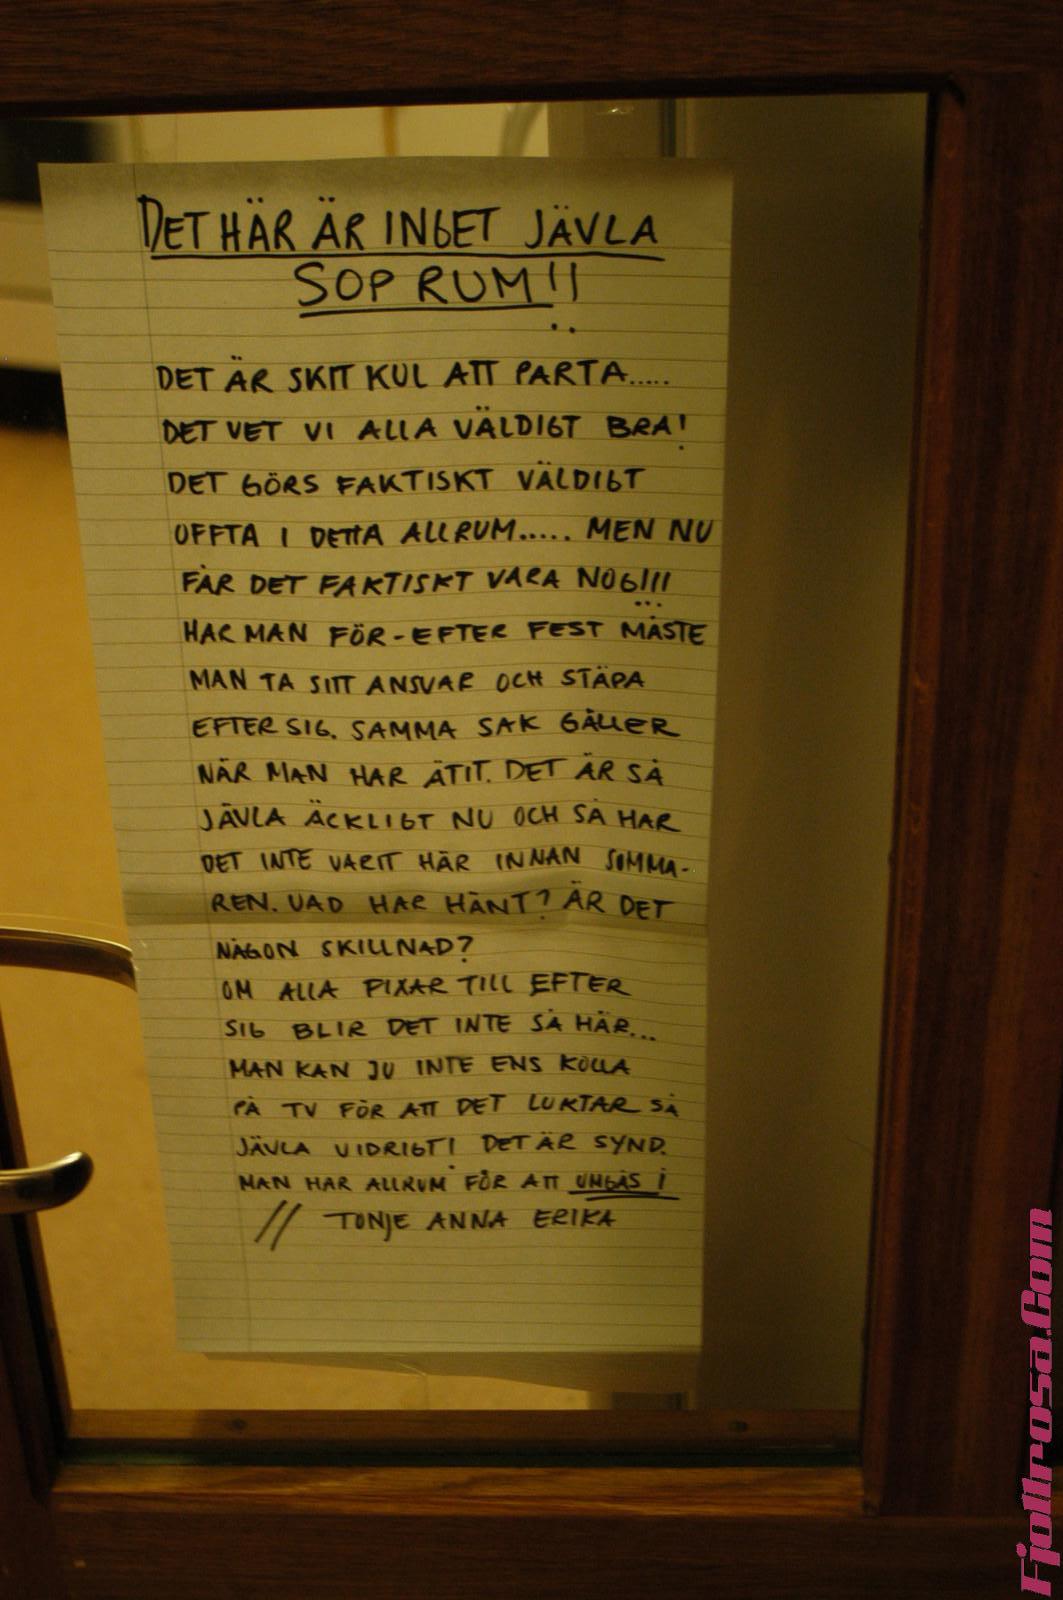 DET HÄR ÄR INGET JÄVLA
SOP RUM!!
DET ÄR SKIT KUL ATT PARTA.....
DET VET VI ALLA VÄLDIGT BRA!
DET GÖRS FAKTISKT VÄLDIGT
OFFTA I DETTA ALLRUM..... MEN NU
FÅR DET FAKTISKT VARA NOG!!!
HAR MAN FÖR-EFTER FEST MÅSTE
MAN TA SITT ANSVAR OCH STÄDA
EFTER SIG. SAMMA SAK GÄLLER
NÄR MAN HAR ÄTIT. DET ÄR SÅ
JÄVLA ÄCKLIGT NU OCH SÅ HAR
DET INTE VARIT HÄR INNAN SOMMA-
REN. VAD HAR HÄNT? ÄR DET
NÅGON SKILLNAD?
OM ALLA FIXAR TILL EFTER
SIG BLIR DET INTE SÅ HÄR...
MAN KAN JU INTE ENS KOLLA
PÅ TV FÖR ATT DET LUKTAR SÅ
JÄVLA VIDRIGT! DET ÄR SYND.
MAN HAR ALLRUM FÖR ATT UMGÅS I
// TONJE ANNA ERIKA
Fjollrosa.Com